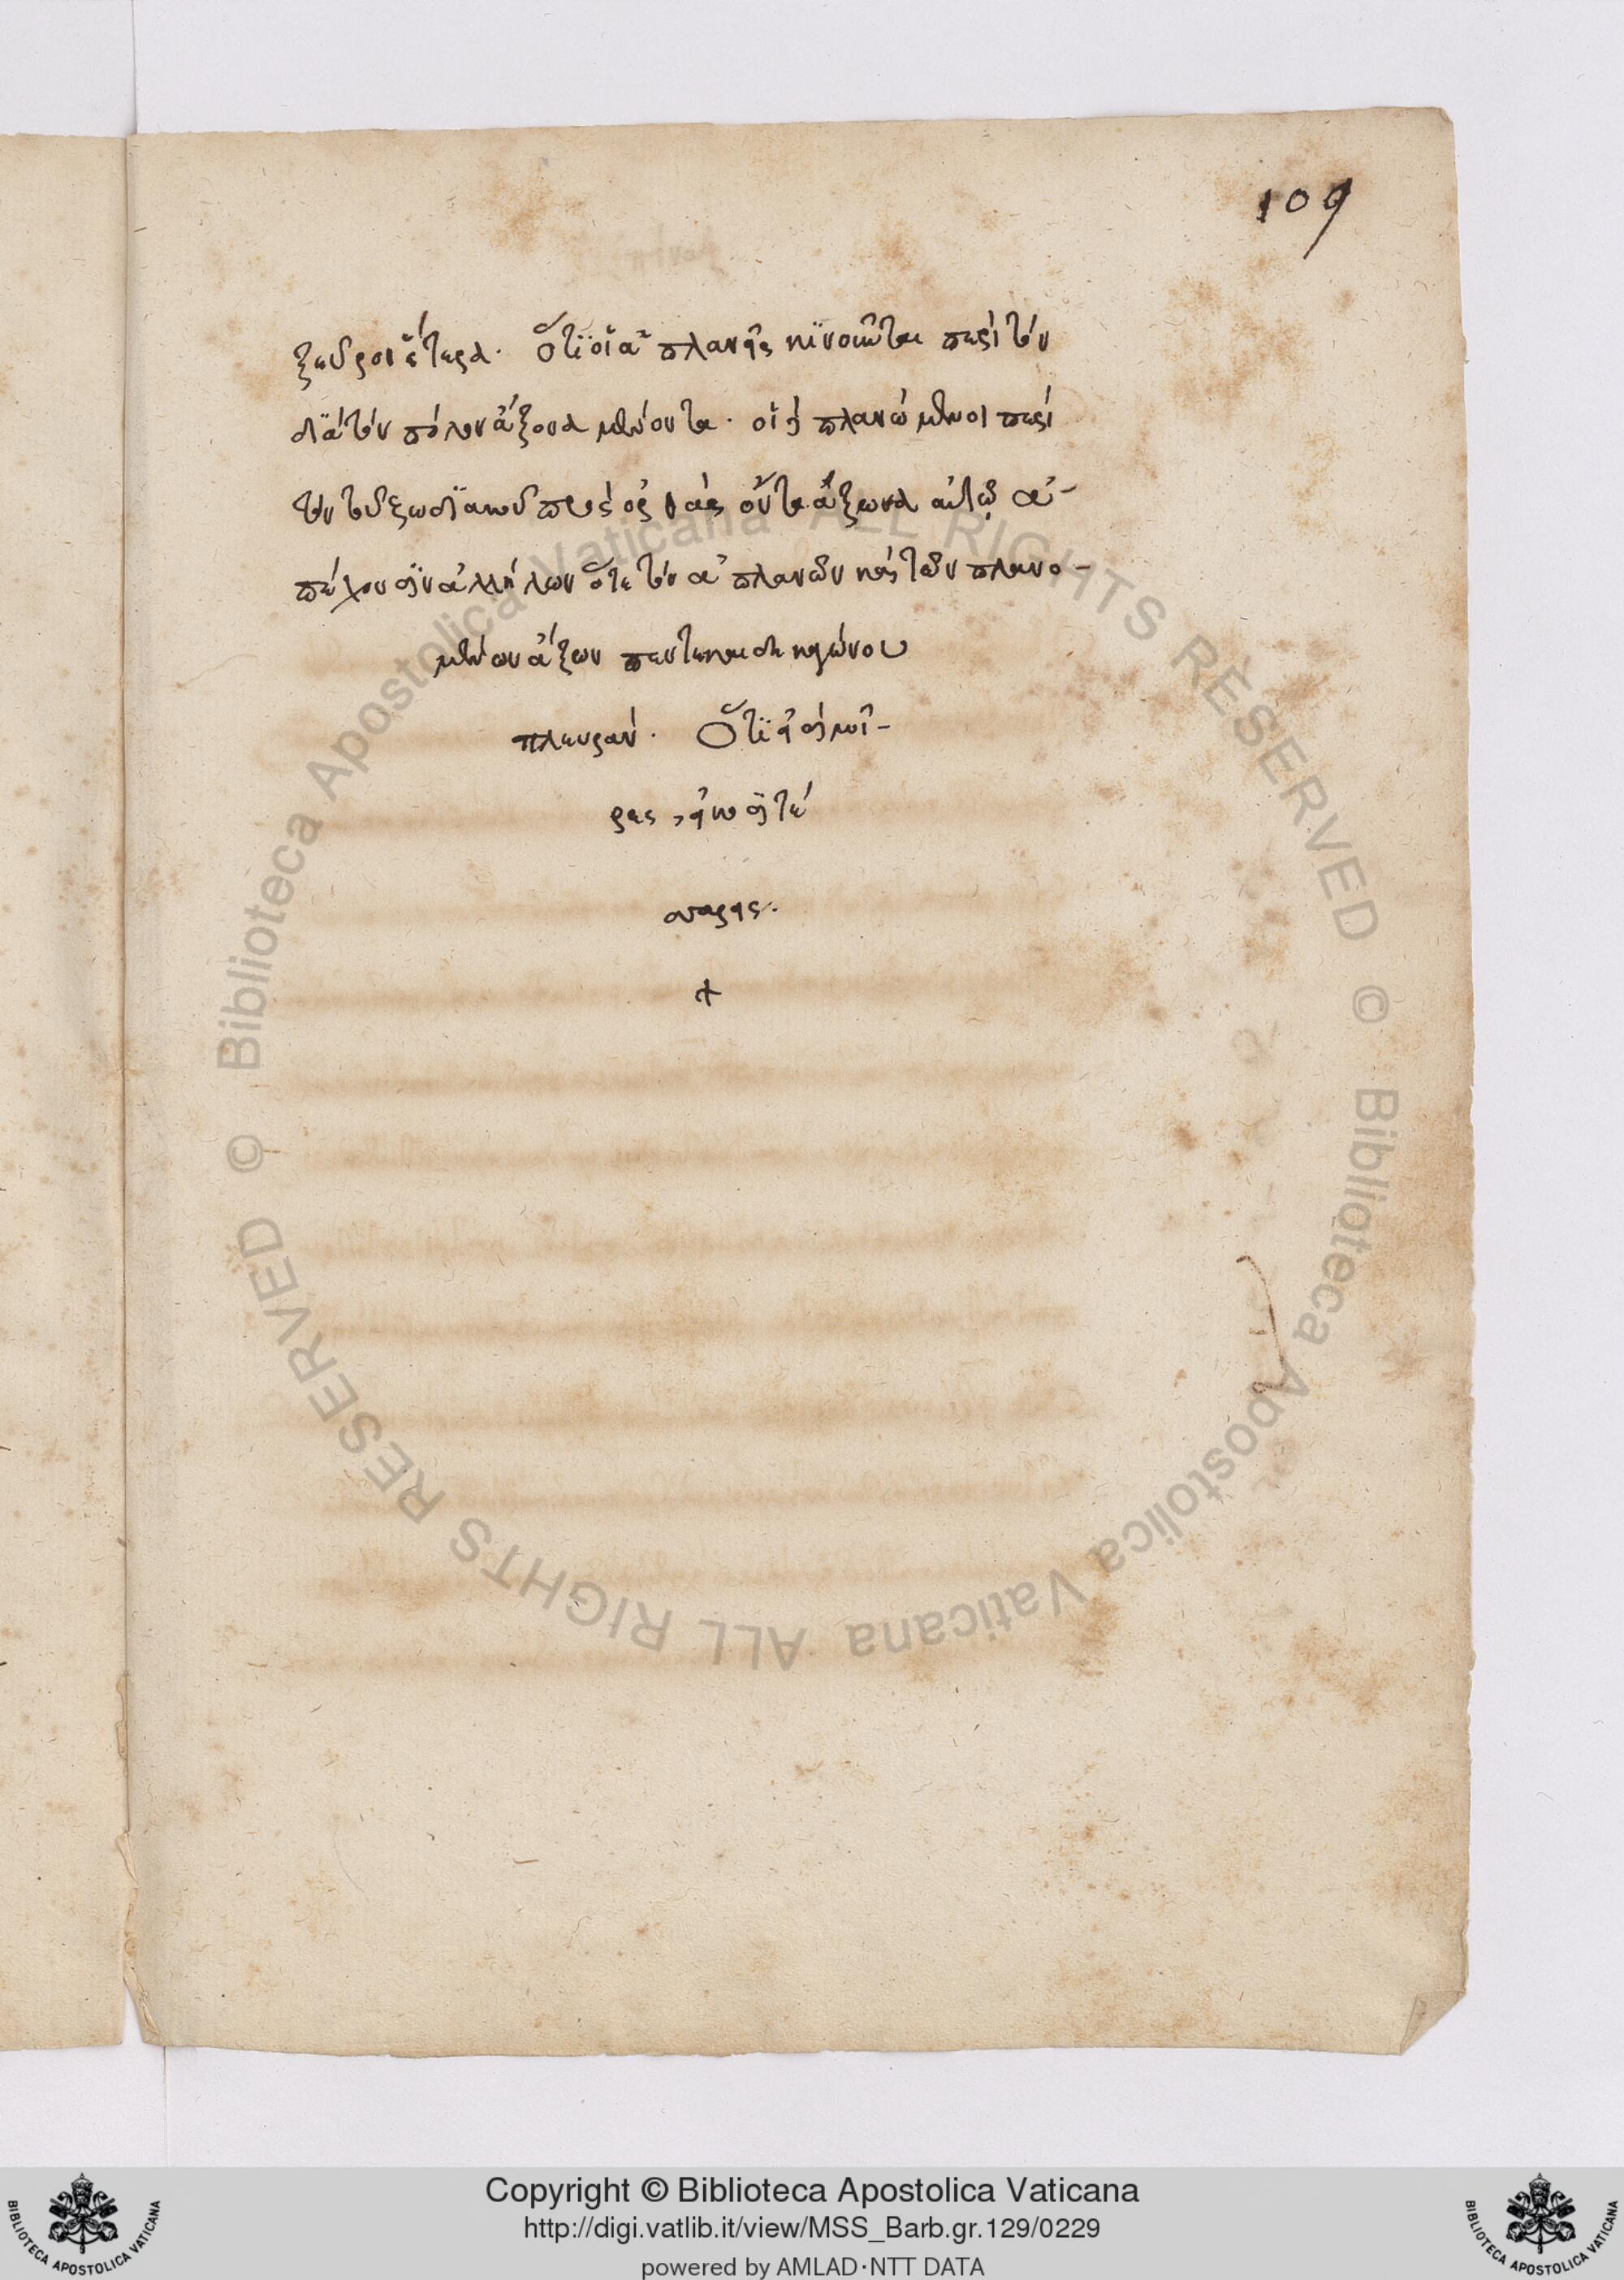 109
ξευρον ἕτερα. ὅτι οἱ ἀπλανεῖς κινοῦνται περὶ τὸν
διὰ τὸν πόλον ἄξονα μένοντα. οἱ δὲ πλανώμενοι περὶ
τὸν τοῦ ζωδιακοῦ πρὸς ὀρθὰς ὄντα ἄξωνα αὐτῷ ἀ-
πέχουσιν ἀλλήλων ὅτε τῶν ἀπλανῶν καὶ τῶν πλανο-
μένων ἄξων πεντεκαιδεκαγώνου
πλευράν. Ὅτι εἰσὶ μοῖ-
ρες, εἰκοσιτέ
σσαρεις.
+
© Biblioteca Apostolica Vaticana ALL RIGHTS RESERVED © Biblioteca Apostolica Vaticana ALL RIGHTS RESERVED
BIBLIOTECA APOSTOLICA VATICANA
Copyright © Biblioteca Apostolica Vaticana
http://digi.vatlib.it/view/MSS_Barb.gr.129/0229
powered by AMLAD·NTT DATA
BIBLIOTECA APOSTOLICA VATICANA